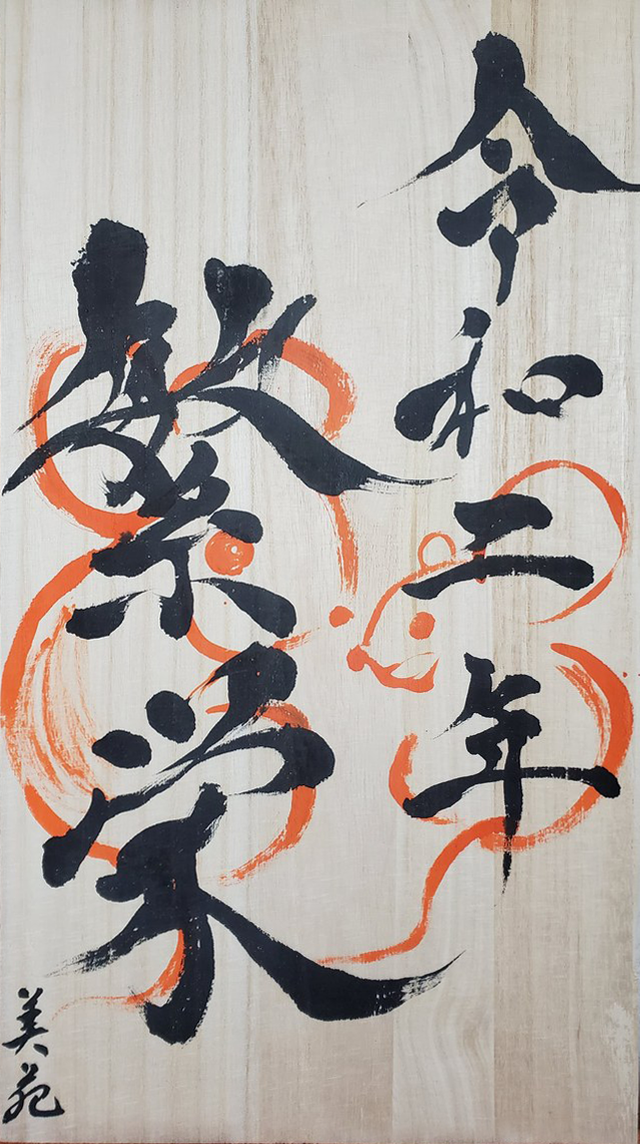 令和二年
繁栄
美苑